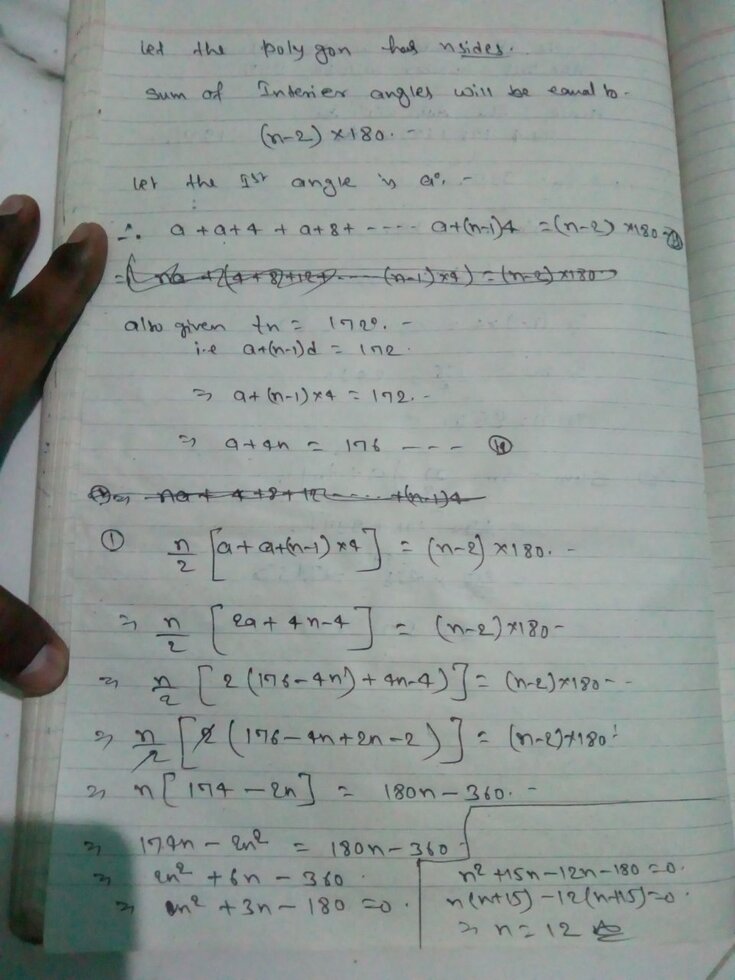 Let the polygon has n sides.
Sum of Interier angles will be equal to -
(n-2) ×180. -
Let the 1st angle is a°. -
∴ a + a+4 + a+8+ ---- a+(n-1)4 = (n-2) ×180-
also given tn = 172°. -
i.e a+(n-1)d = 172.
⇒ a+(n-1)×4 = 172. -
⇒ a+4n = 176 --- (11)
① n/2 [a+a+(n-1)×4] = (n-2) ×180. -
⇒ n/2 [2a+4n-4] = (n-2)×180-
⇒ n/2 [2(176-4n)+4n-4)] = (n-2)×180--
⇒ n/2 [2(176-4n+2n-2)] = (n-2)×180
⇒ n[174-2n] = 180n-360. -
⇒ 174n-2n² = 180n-360
⇒ 2n²+6n-360
⇒ n²+3n-180=0.
n²+15n-12n-180=0.
n(n+15)-12(n+15)=0
⇒ n=12